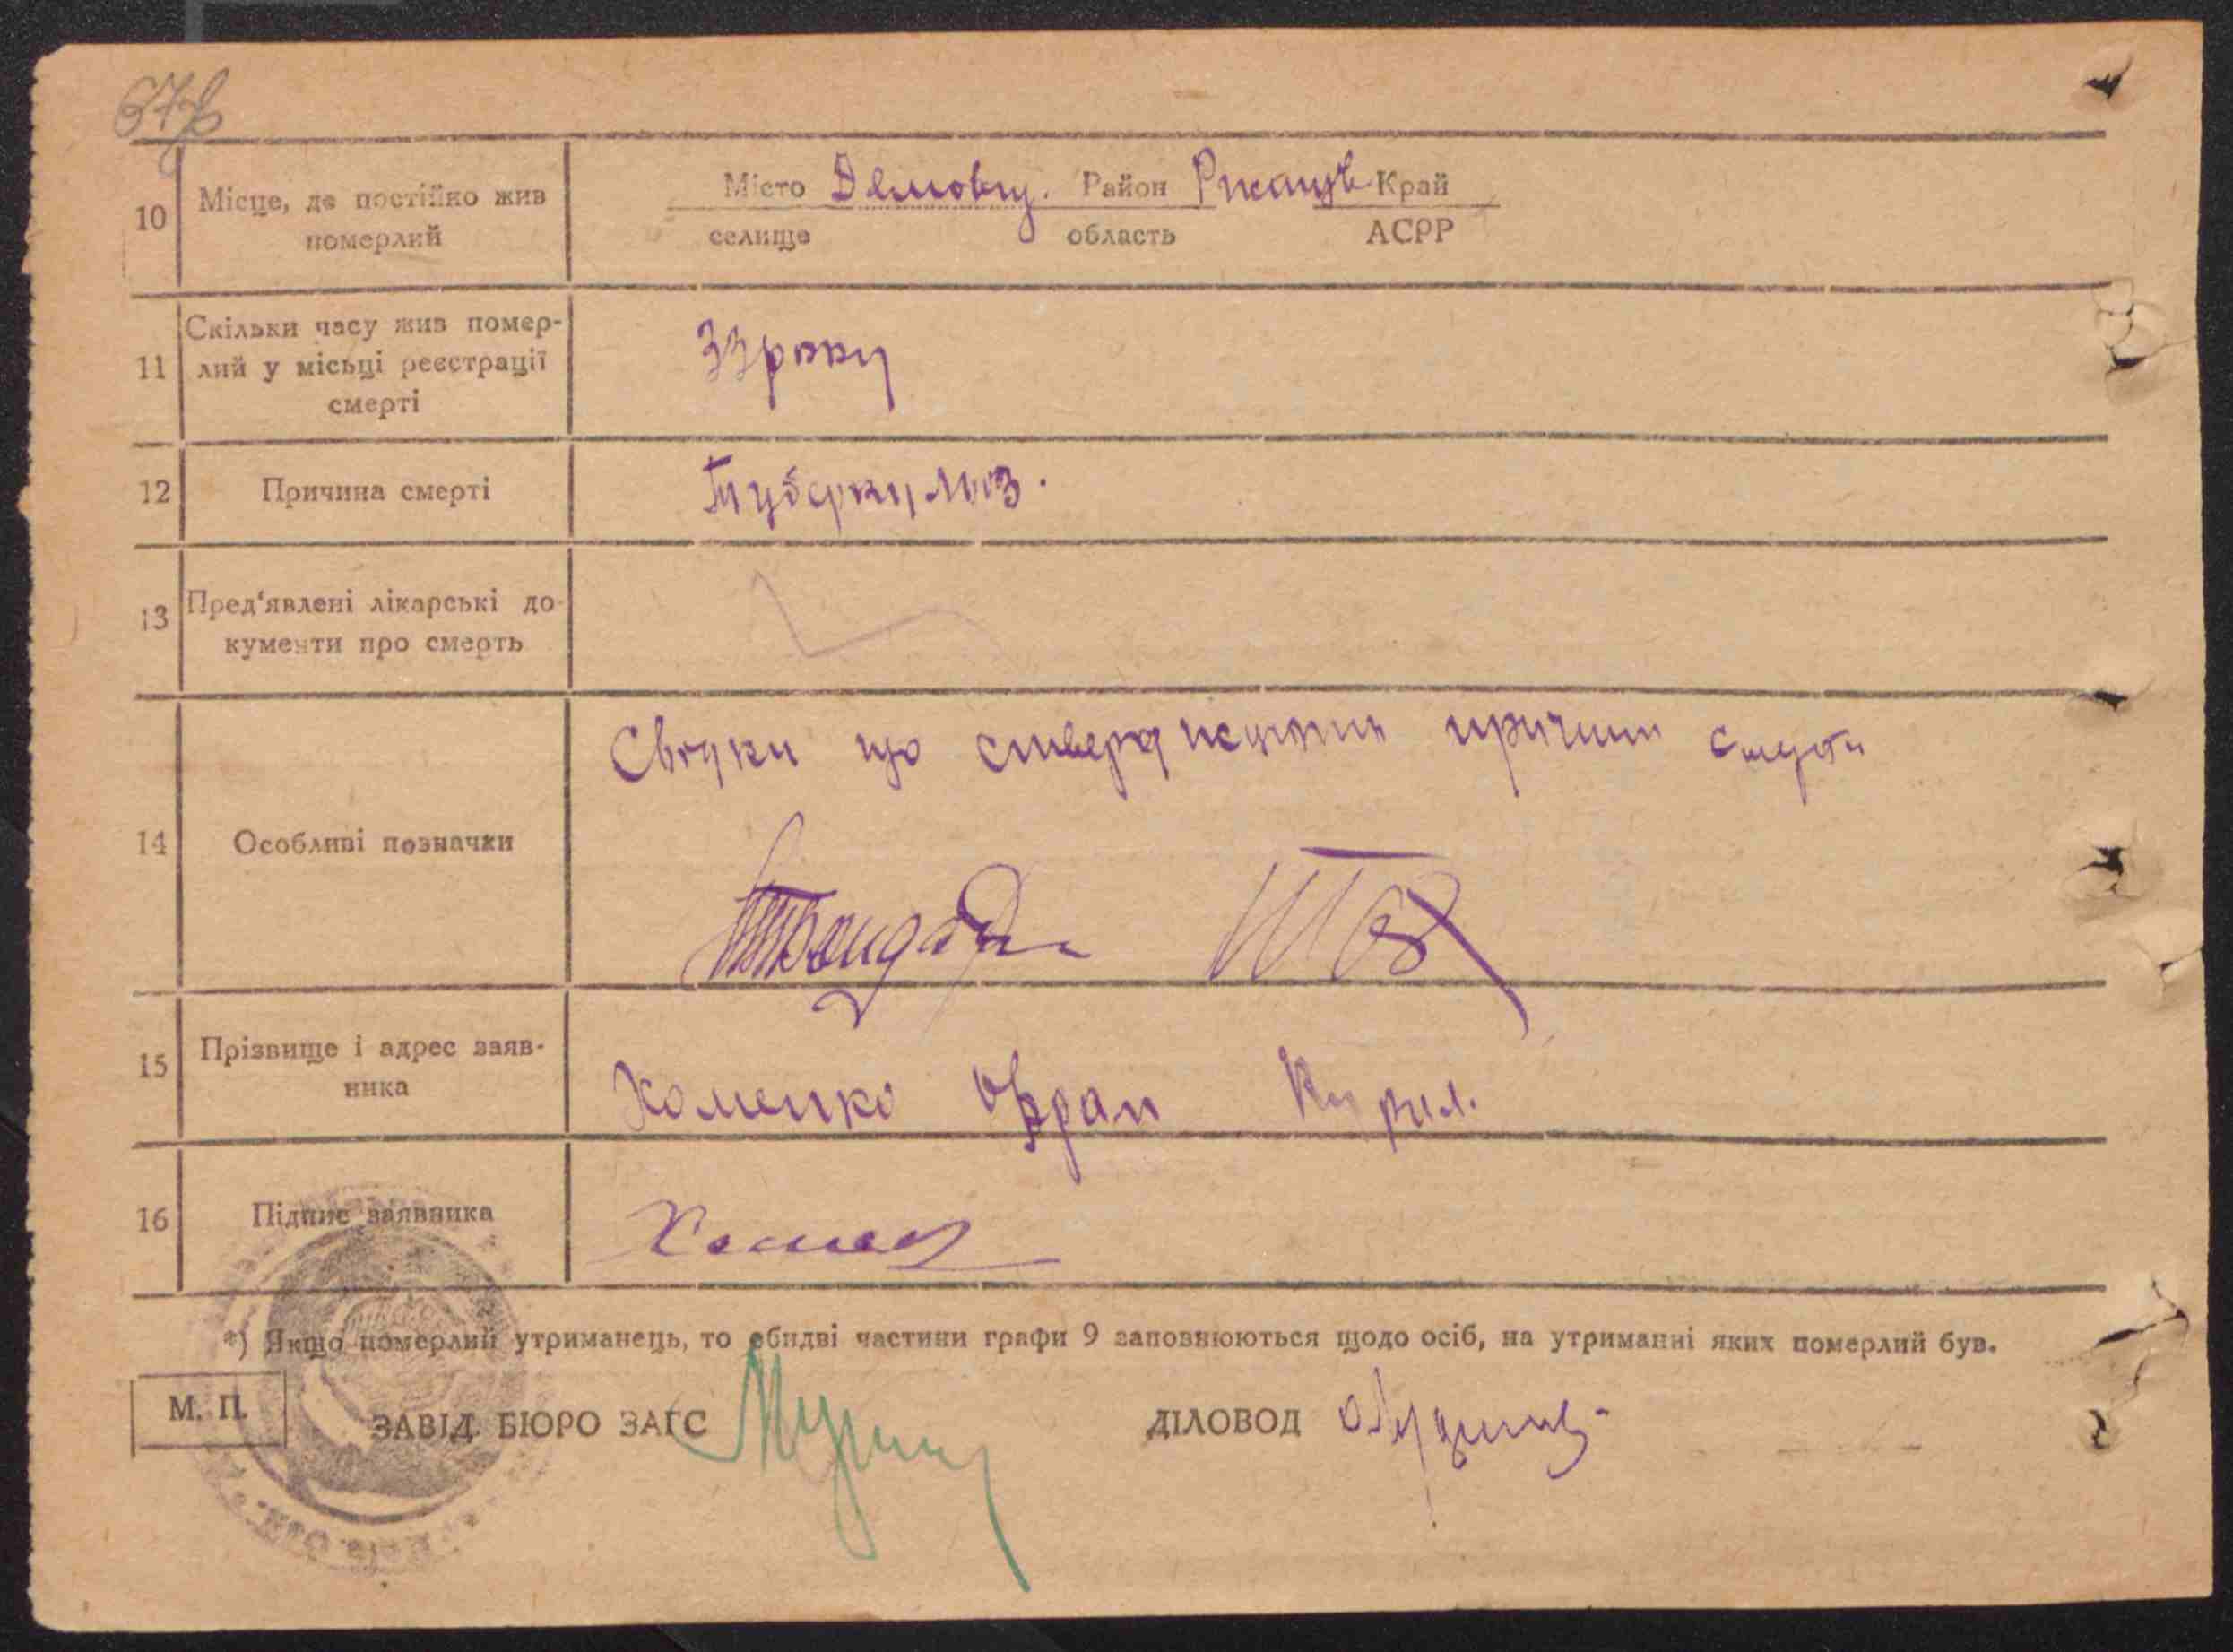 10 Місце, де постійно жив
померлий
Місто Демовщ. Район Ржищів Край
селище область АСРР
11 Скільки часу жив помер-
лий у місьці реєстрації
смерті
33 роки
12 Причина смерті
Туберкульоз.
13 Пред'явлені лікарські до-
кументи про смерть
14 Особливі позначки
Свідки що стверджують причини смерти
15 Прізвище і адрес заяв-
ника
Хоменко Кирил.
16 Підпис заявника
*) Якщо померлий утриманець, то обидві частини графи 9 заповнюються щодо осіб, на утриманні яких померлий був.
М. П. ЗАВІД. БЮРО ЗАГС ДІЛОВОД